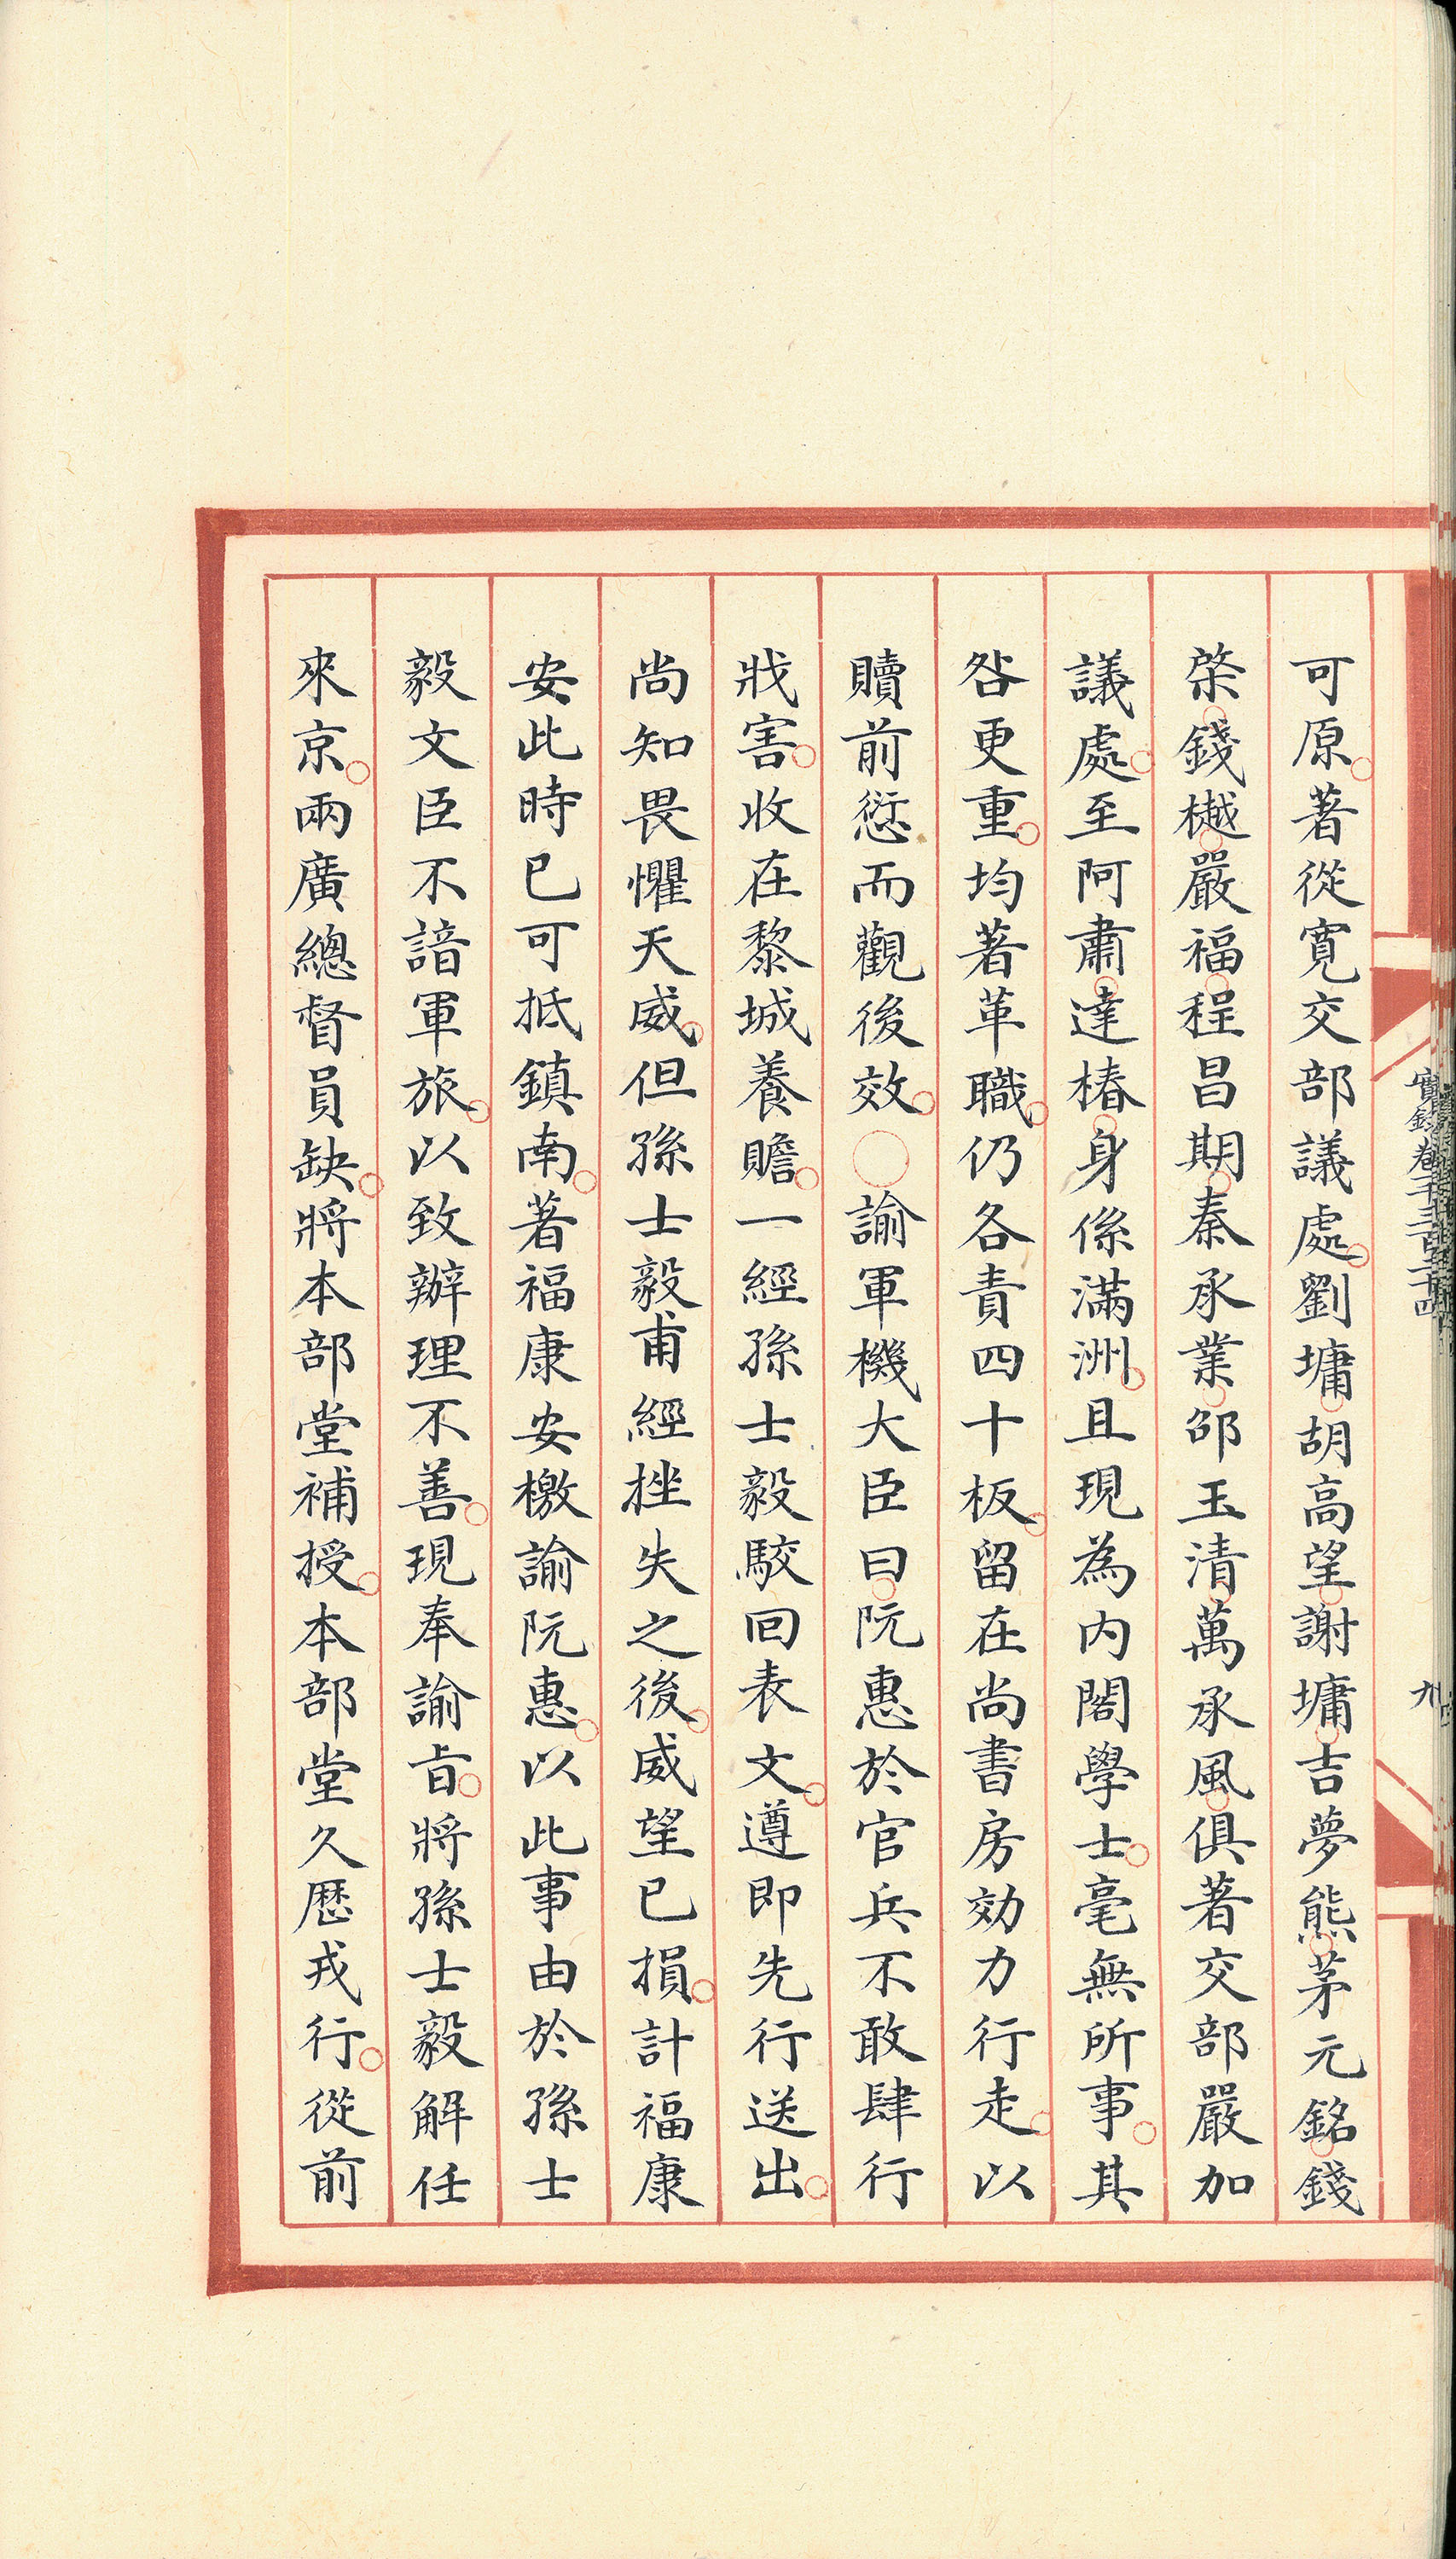 可原。著從寬交部議處。劉墉。胡高望。謝墉。吉夢熊。茅元銘。錢
棨。錢樾。嚴福。程昌期。秦承業。邵玉清。萬承風。俱著交部嚴加
議處。至阿肅。達椿。身係滿洲。且現為內閣學士。毫無所事。其
咎更重。均著革職。仍各責四十板。留在尚書房効力行走。以
贖前愆而觀後效。○諭軍機大臣曰。阮惠於官兵不敢肆行
戕害。收在黎城養贍。一經孫士毅駮回表文。遵即先行送出。
尚知畏懼天威。但孫士毅甫經挫失之後。威望已損。計福康
安此時已可抵鎮南。著福康安檄諭阮惠。以此事由於孫士
毅文臣不諳軍旅。以致辦理不善。現奉諭旨。將孫士毅解任
來京。兩廣總督員缺。將本部堂補授。本部堂久歷戎行。從前
實錄卷一千三百二十四
九